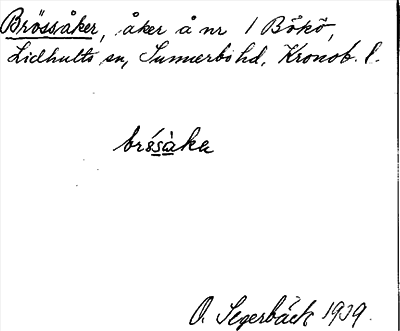 Brössåker, åker å nr 1 Bökö,
Lidhults sn, Sunnerbo hd, Kronob. l.
brø̀sàka
O. Segerbäck 1939.